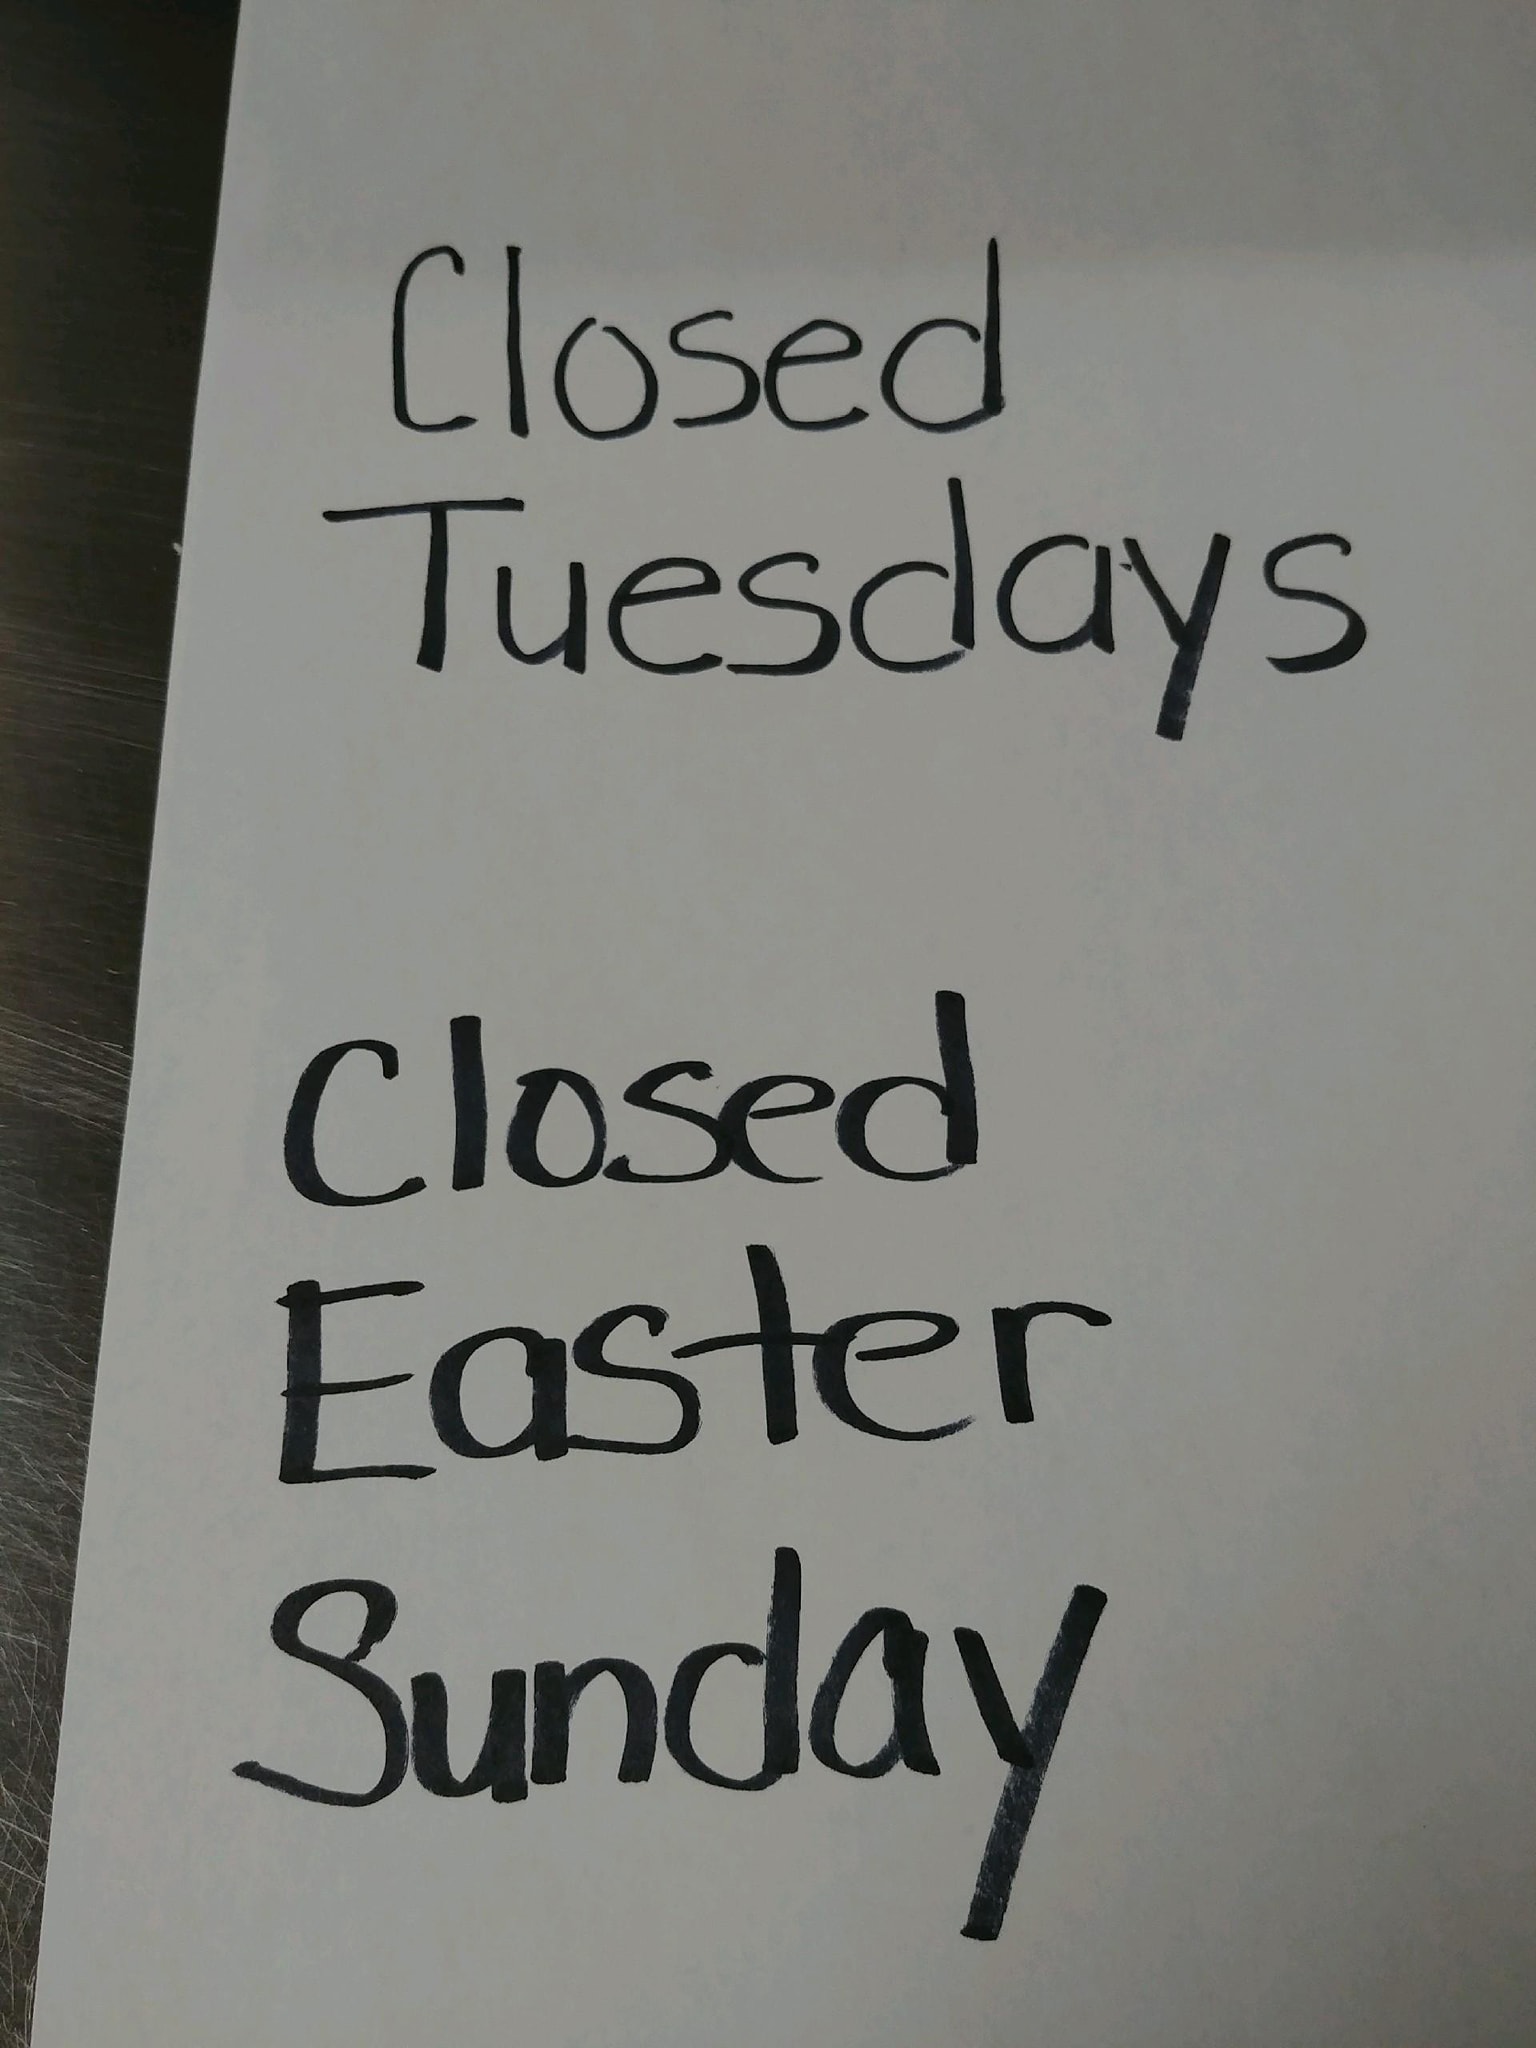 Closed
Tuesdays
Closed
Easter
Sunday